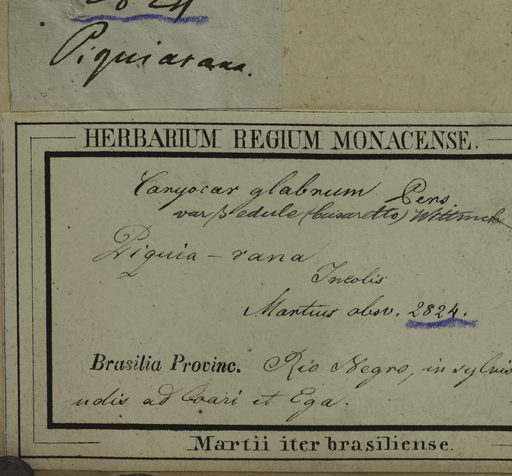 2824
Piquiarana.
HERBARIUM REGIUM MONACENSE.
Caryocar glabrum Pers.
var β edule (Casaretto) Wittmack
Piquia-rana
Incolis
Martius obsv. 2824.
Brasilia Provinc. Rio Negro, in sylvis
udis ad Coari et Ega.
Martii iter brasiliense.